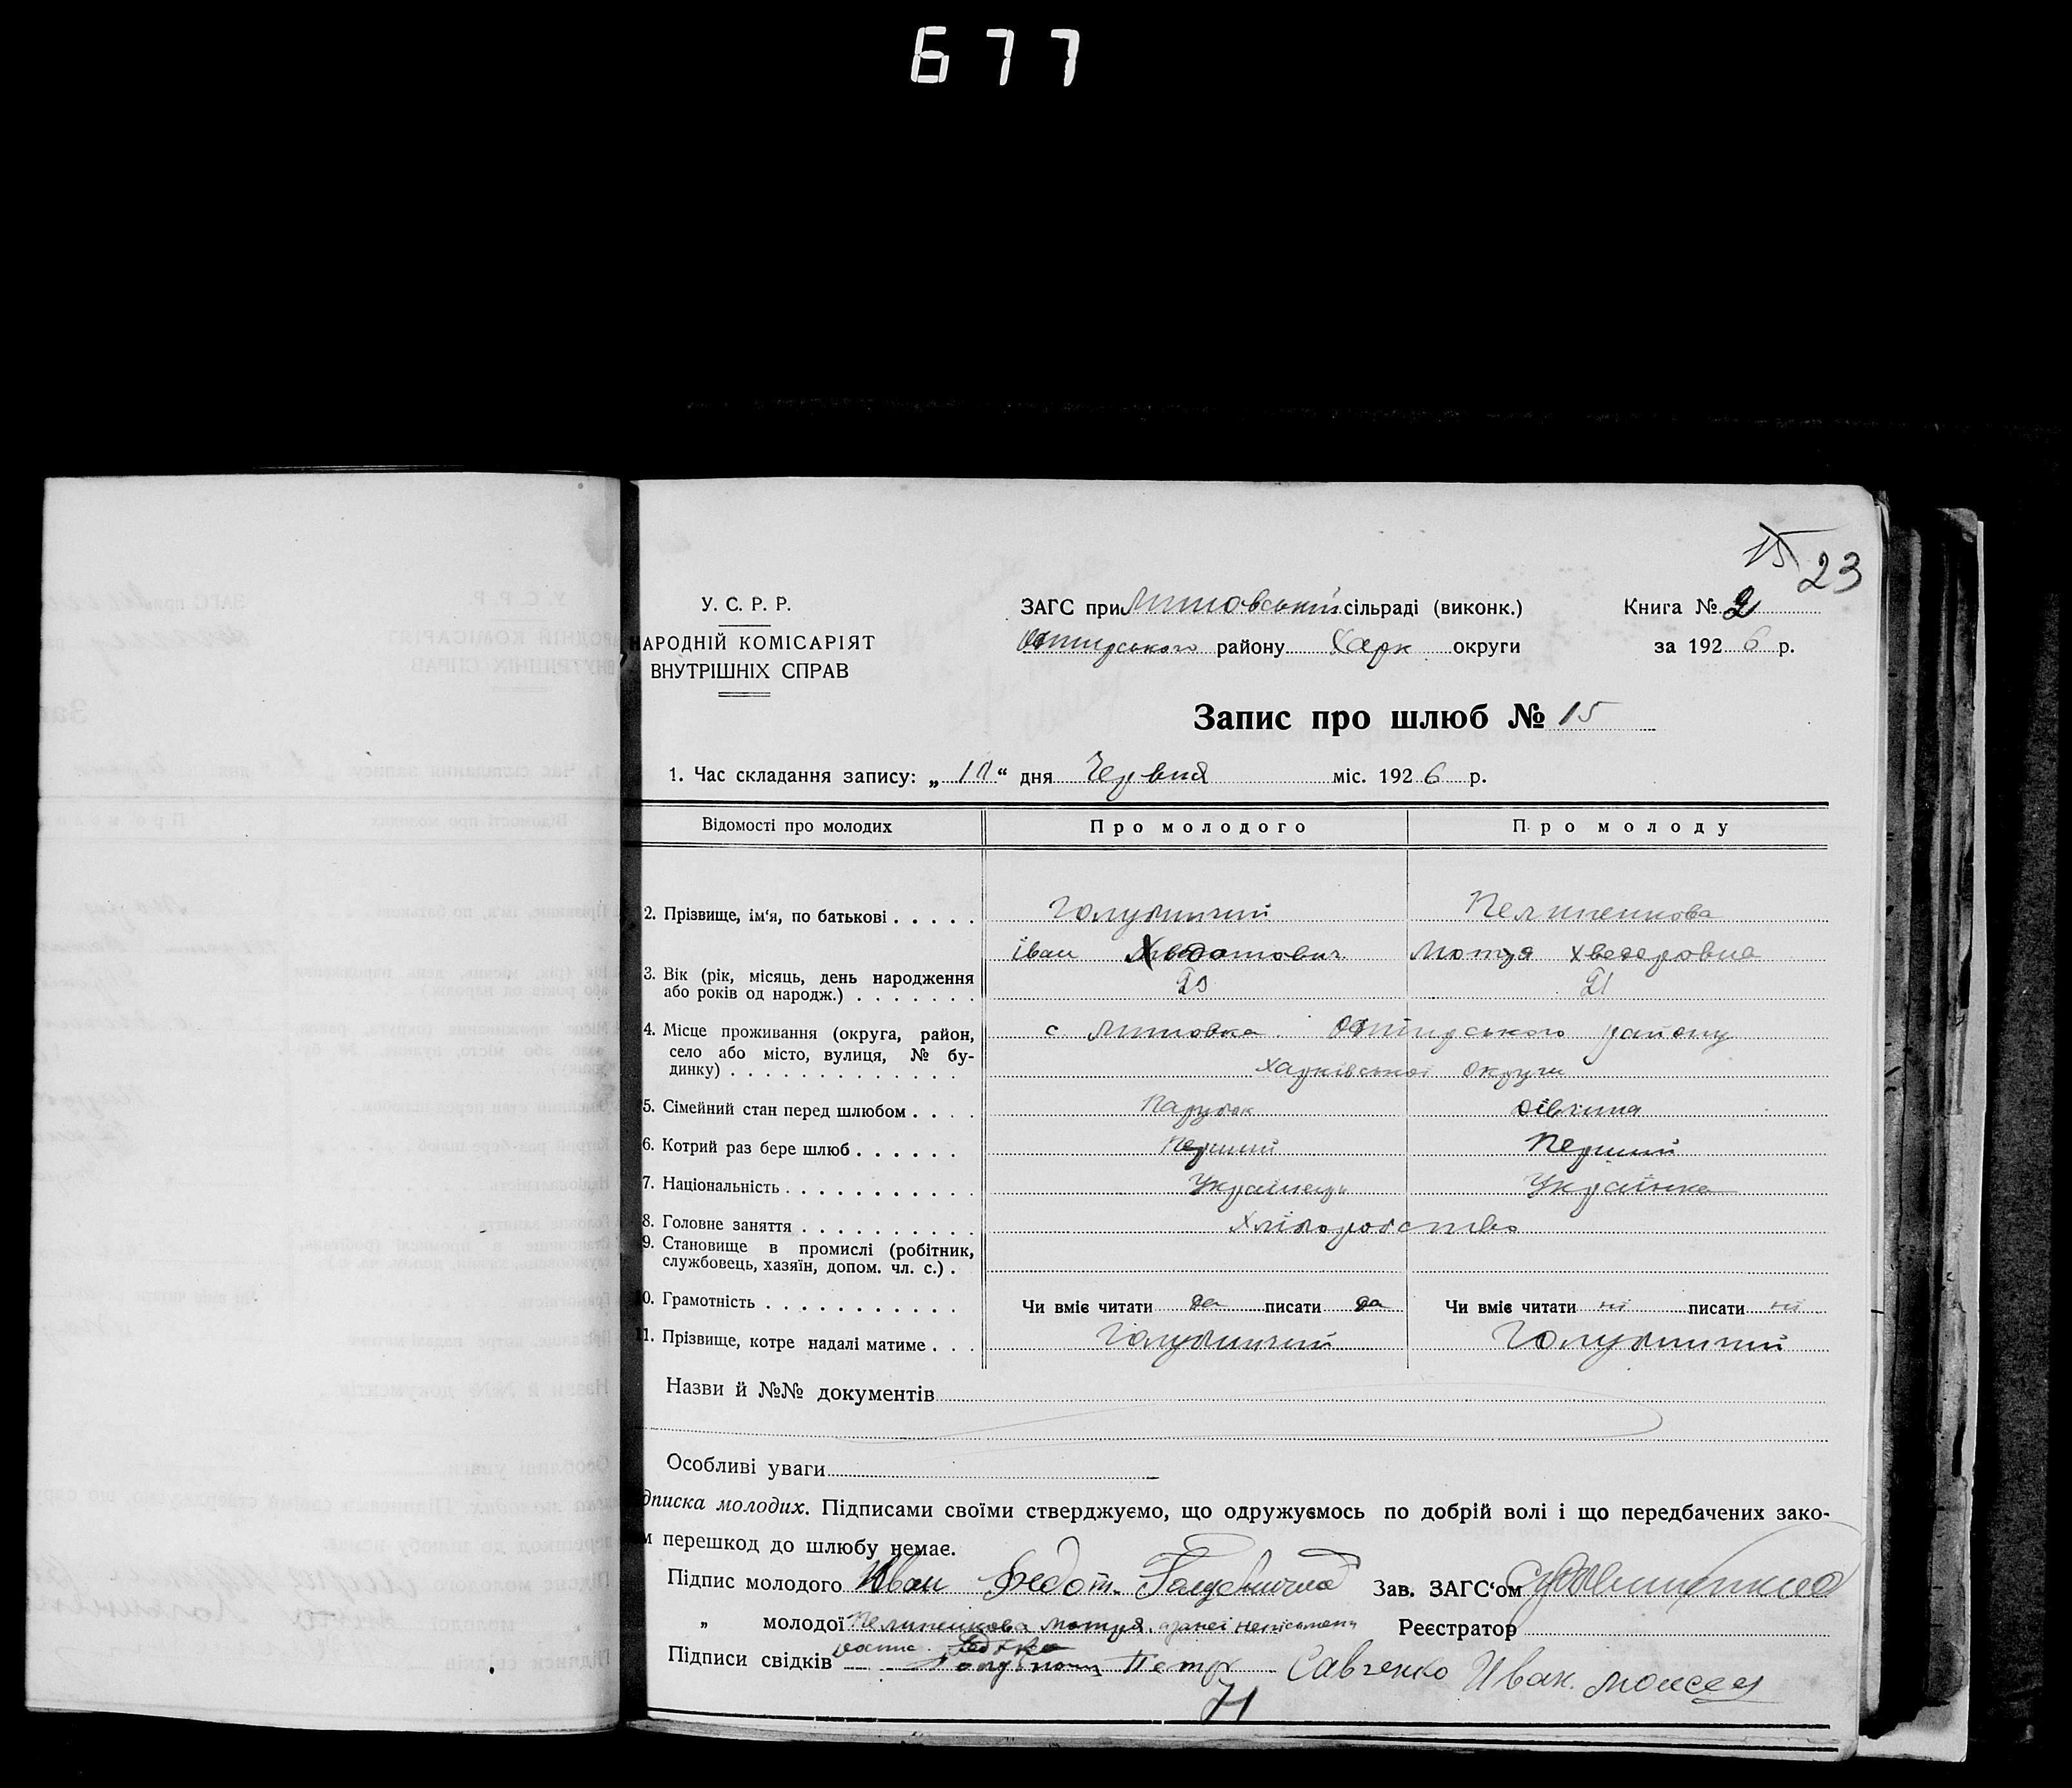 677
15 23
У. С. Р. Р.
НАРОДНІЙ КОМІСАРІЯТ
ВНУТРІШНІХ СПРАВ
ЗАГС при Литовській сільраді (виконк.)
району Харк округи
Книга № 2
за 1926 р.
Запис про шлюб № 15
1. Час складання запису: „ 10 “ дня Червня міс. 1926 р.
Відомості про молодих Про молодого Про молоду
2. Прізвище, ім‘я, по батькові . . . . . Голубничий
Іван Хведотович Мотря Хведоровна
3. Вік (рік, місяць, день народження
або років од народж.) . . . . . . . 21
4. Місце проживання (округа, район, с Литовка району
село або місто, вулиця, № бу-
динку) . . . . . . . . . . . . . Харківської округи
5. Сімейний стан перед шлюбом . . . . Парубок дівчина
6. Котрий раз бере шлюб . . . . . . Перший Перший
7. Національність . . . . . . . . . . . Українець Українка
8. Головне заняття . . . . . . . . . . Хліборобство
9. Становище в промислі (робітник,
службовець, хазяїн, допом. чл. с.) .
10. Грамотність . . . . . . . . . . . Чи вміє читати да писати да Чи вміє читати ні писати ні
11. Прізвище, котре надалі матиме . . . Голубничий Голубничий
Назви й №№ документів
Особливі уваги
дписка молодих. Підписами своїми стверджуємо, що одружуємось по добрій волі і що передбачених зако-
м перешкод до шлюбу немає.
Підпис молодого Иван Федот. Зав. ЗАГС‘ом
„ молодої Мотря Реєстратор
Підписи свідків Петр Савченко Иван. Моисеев